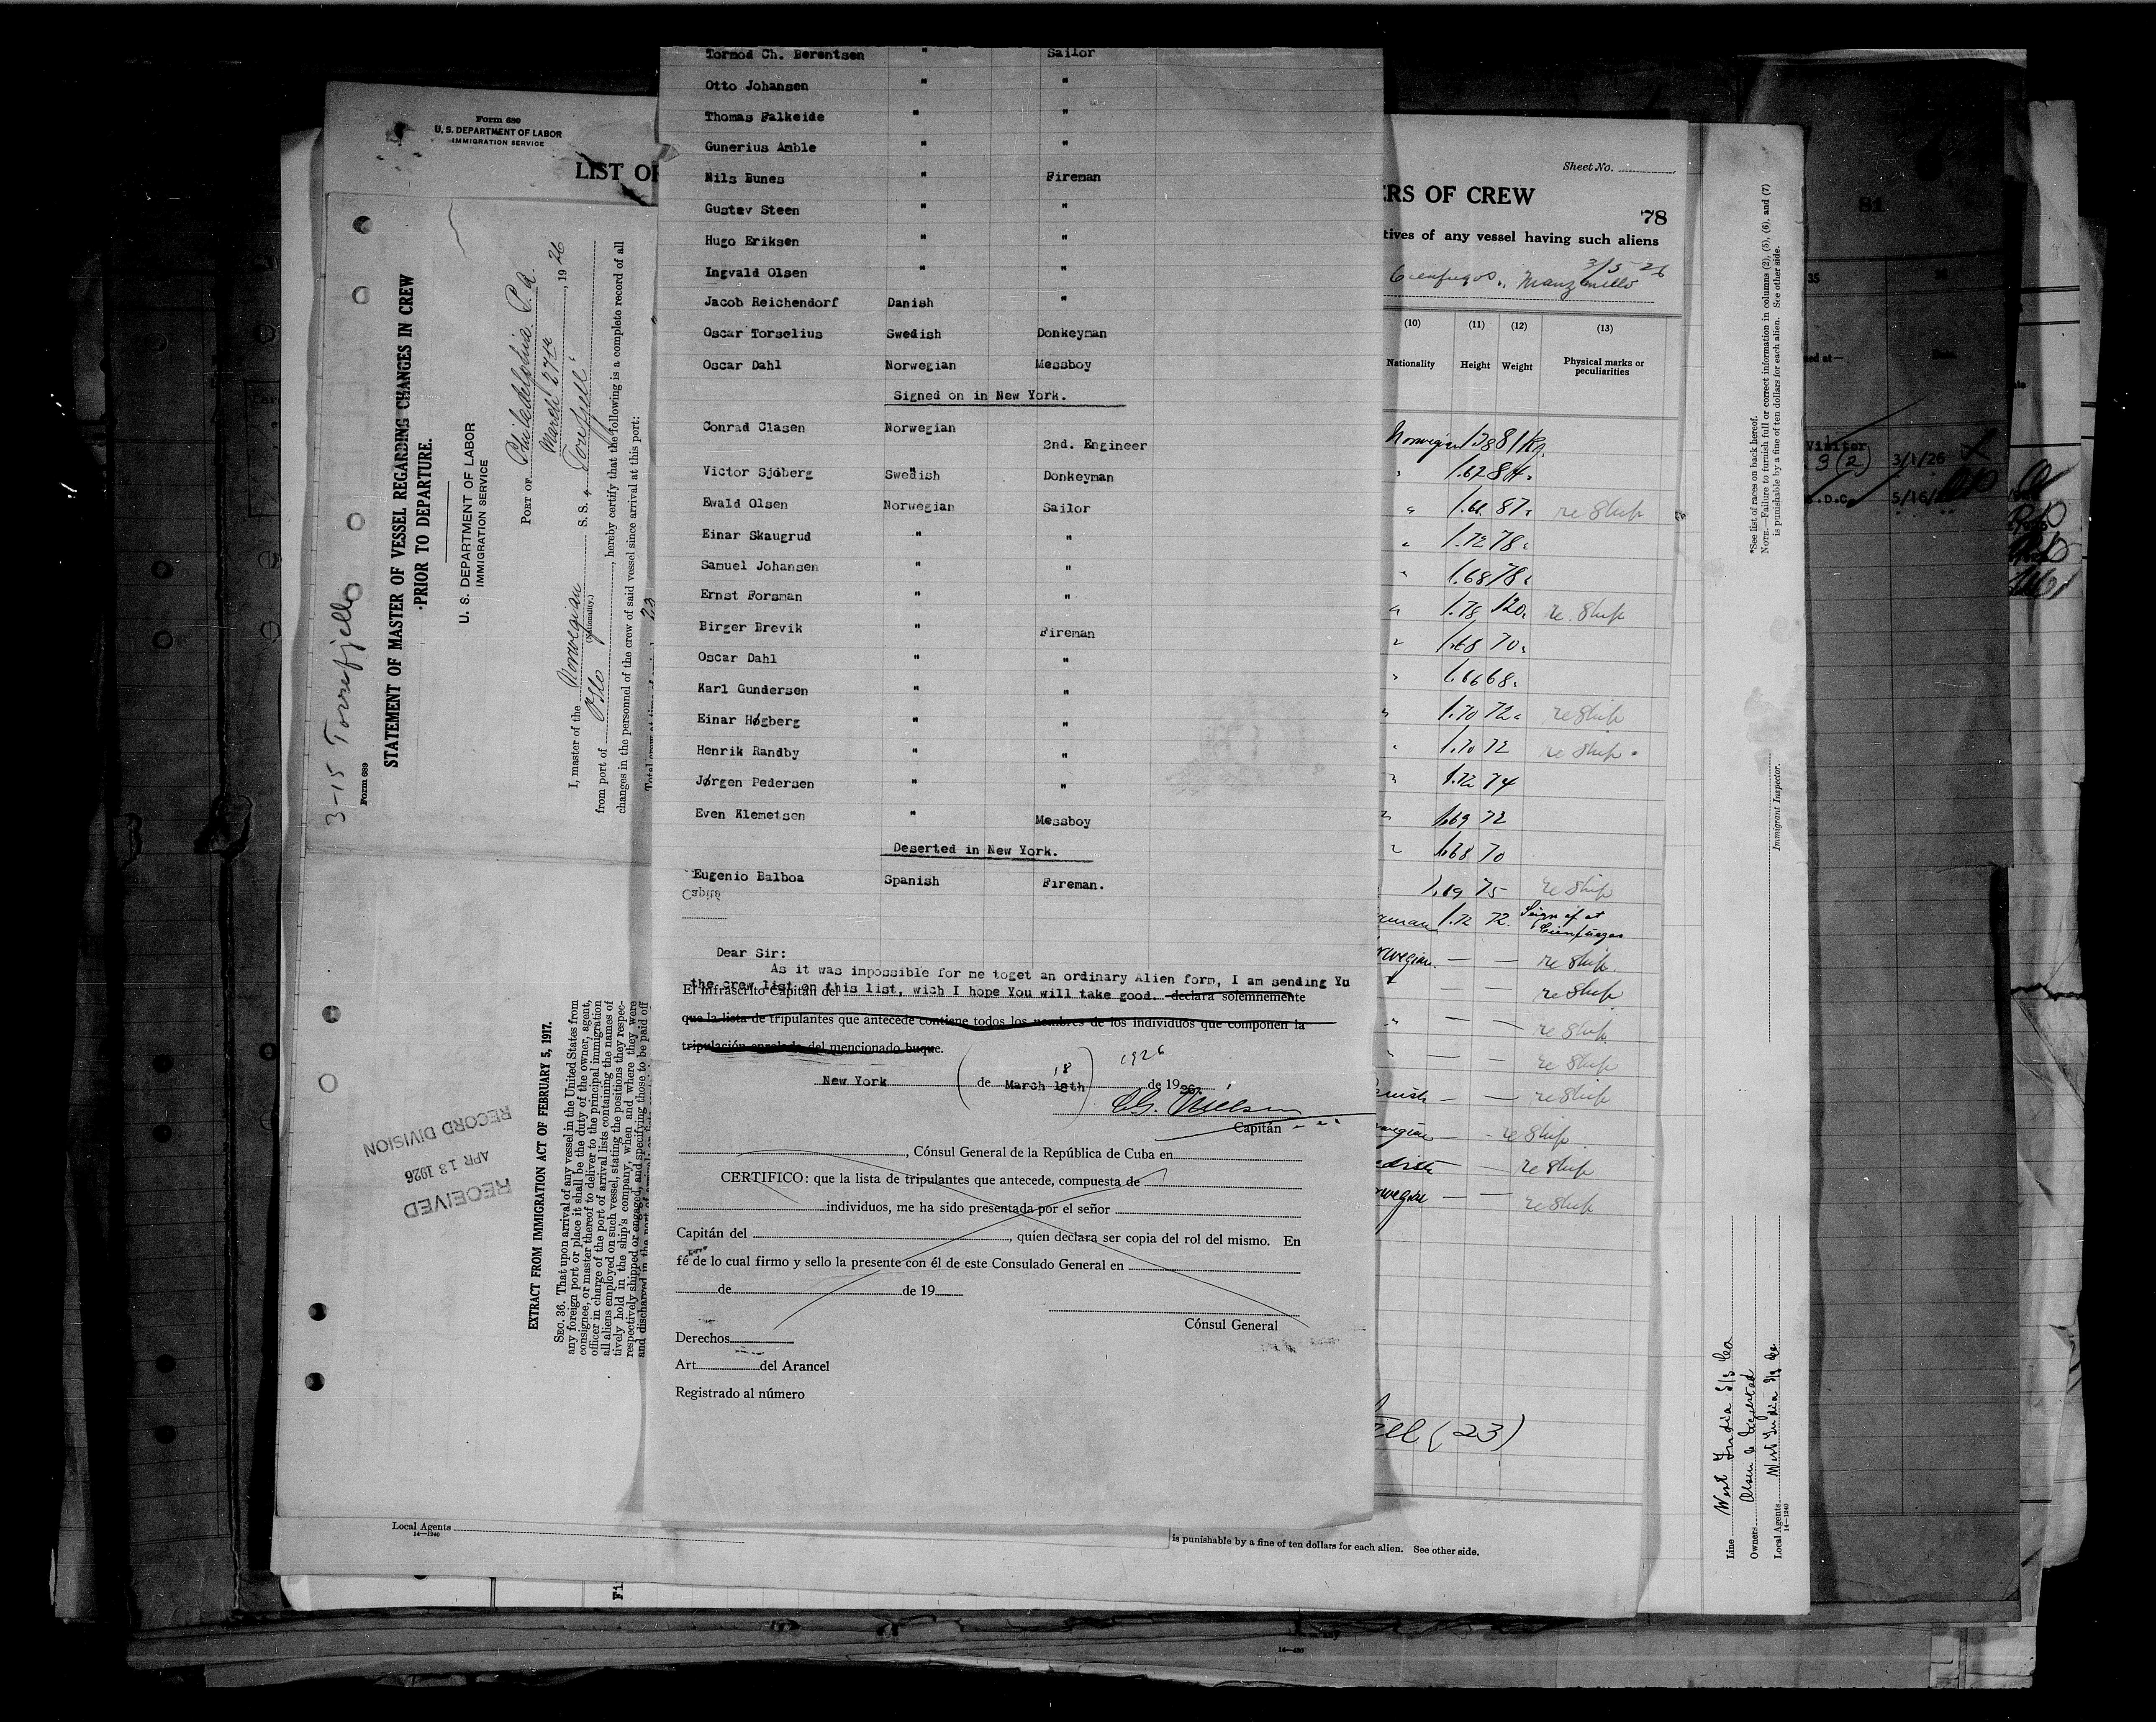 Form 680
U. S. DEPARTMENT OF LABOR
IMMIGRATION SERVICE
LIST OF
3-15 Torrefjell
Form 689
STATEMENT OF MASTER OF VESSEL REGARDING CHANGES IN CREW
PRIOR TO DEPARTURE.
U. S. DEPARTMENT OF LABOR
IMMIGRATION SERVICE
PORT OF Philadelphia Pa.
March 27th, 1926
I, master of the Norwegian S. S. "Torefjell"
(Nationality.)
from port of Oslo, hereby certify that the following is a complete record of all
changes in the personnel of the crew of said vessel since arrival at this port:
EXTRACT FROM IMMIGRATION ACT OF FEBRUARY 5, 1917.
SEC. 36. That upon arrival of any vessel in the United States from
any foreign port or place it shall be the duty of the owner, agent,
consignee, or master thereof to deliver to the principal immigration
officer in charge of the port of arrival lists containing the names of
all aliens employed on such vessel, stating the positions they respec-
tively hold in the ship's company, when and where they were
respectively shipped or engaged, and specifying those to be paid off
and discharged in the port of arrival
RECEIVED
APR 13 1926
RECORD DIVISION
Local Agents
14—1240
Tormod Ch. Berentsen " Sailor
Otto Johansen " "
Thomas Falkeide " "
Gunerius Amble " "
Nils Bunes " Fireman
Gustav Steen " "
Hugo Eriksen " "
Ingvald Olsen " "
Jacob Reichendorf Danish "
Oscar Torselius Swedish Donkeyman
Oscar Dahl Norwegian Messboy
Signed on in New York.
Conrad Clasen Norwegian 2nd. Engineer
Victor Sjöberg Swedish Donkeyman
Ewald Olsen Norwegian Sailor
Einar Skaugrud " "
Samuel Johansen " "
Ernst Forsman " "
Birger Brevik " Fireman
Oscar Dahl " "
Karl Gundersen " "
Einar Høgberg " "
Henrik Randby " "
Jørgen Pedersen " "
Even Klemetsen " Messboy
Deserted in New York.
Eugenio Balboa Spanish Fireman.
Capitá
Dear Sir:
As it was impossible for me toget an ordinary Alien form, I am sending Yu
the crew list on this list, wich I hope You will take good.
El infrascrito Capitán del declara solemnemente
que la lista de tripulantes que antecede contiene todos los nombres de los individuos que componen la
tripulación enrolada del mencionado buque.
18 1926
New York de March 18th de 1926.
Capitán
, Cónsul General de la República de Cuba en
CERTIFICO: que la lista de tripulantes que antecede, compuesta de
individuos, me ha sido presentada por el señor
Capitán del , quien declara ser copia del rol del mismo. En
fé de lo cual firmo y sello la presente con él de este Consulado General en
de de 19
Cónsul General
Derechos
Art. del Arancel
Registrado al número
Sheet No.
ERS OF CREW
78
tives of any vessel having such aliens
3/5-26
Cienfuegos, Manzanillo
(10) (11) (12) (13)
Nationality Height Weight Physical marks or
peculiarities
Norwegian
" 1.62 84.
" 1.61. 87. re Ship
" 1.72 78.
" 1.68 78.
" 1.78 120. re. Ship
" 1.68 70.
" 1.66 68.
" 1.70 72. re Ship
" 1.70 72 re Ship
" 1.72 74
" 1.69 72
" 1.68 70
75 re Ship
erman 1.72 72. Sign of at
Cienfuegos
rwegian. — — re Ship.
— — re Ship
" — — re Ship.
" — — re Ship
— — re Ship
wegian — - re Ship.
edish — — re Ship
rwegian — — re Ship
(23)
is punishable by a fine of ten dollars for each alien. See other side.
*See list of races on back hereof.
NOTE.—Failure to furnish full or correct information in columns (2), (5), (6), and (7)
is punishable by a fine of ten dollars for each alien. See other side.
Immigrant Inspector.
Line West India S/S Co
Owners Olsen &
Local Agents West India S/S Co
14—1240
81
35
ed at—
Visitor
3 (2) 3/1/26
5/16/